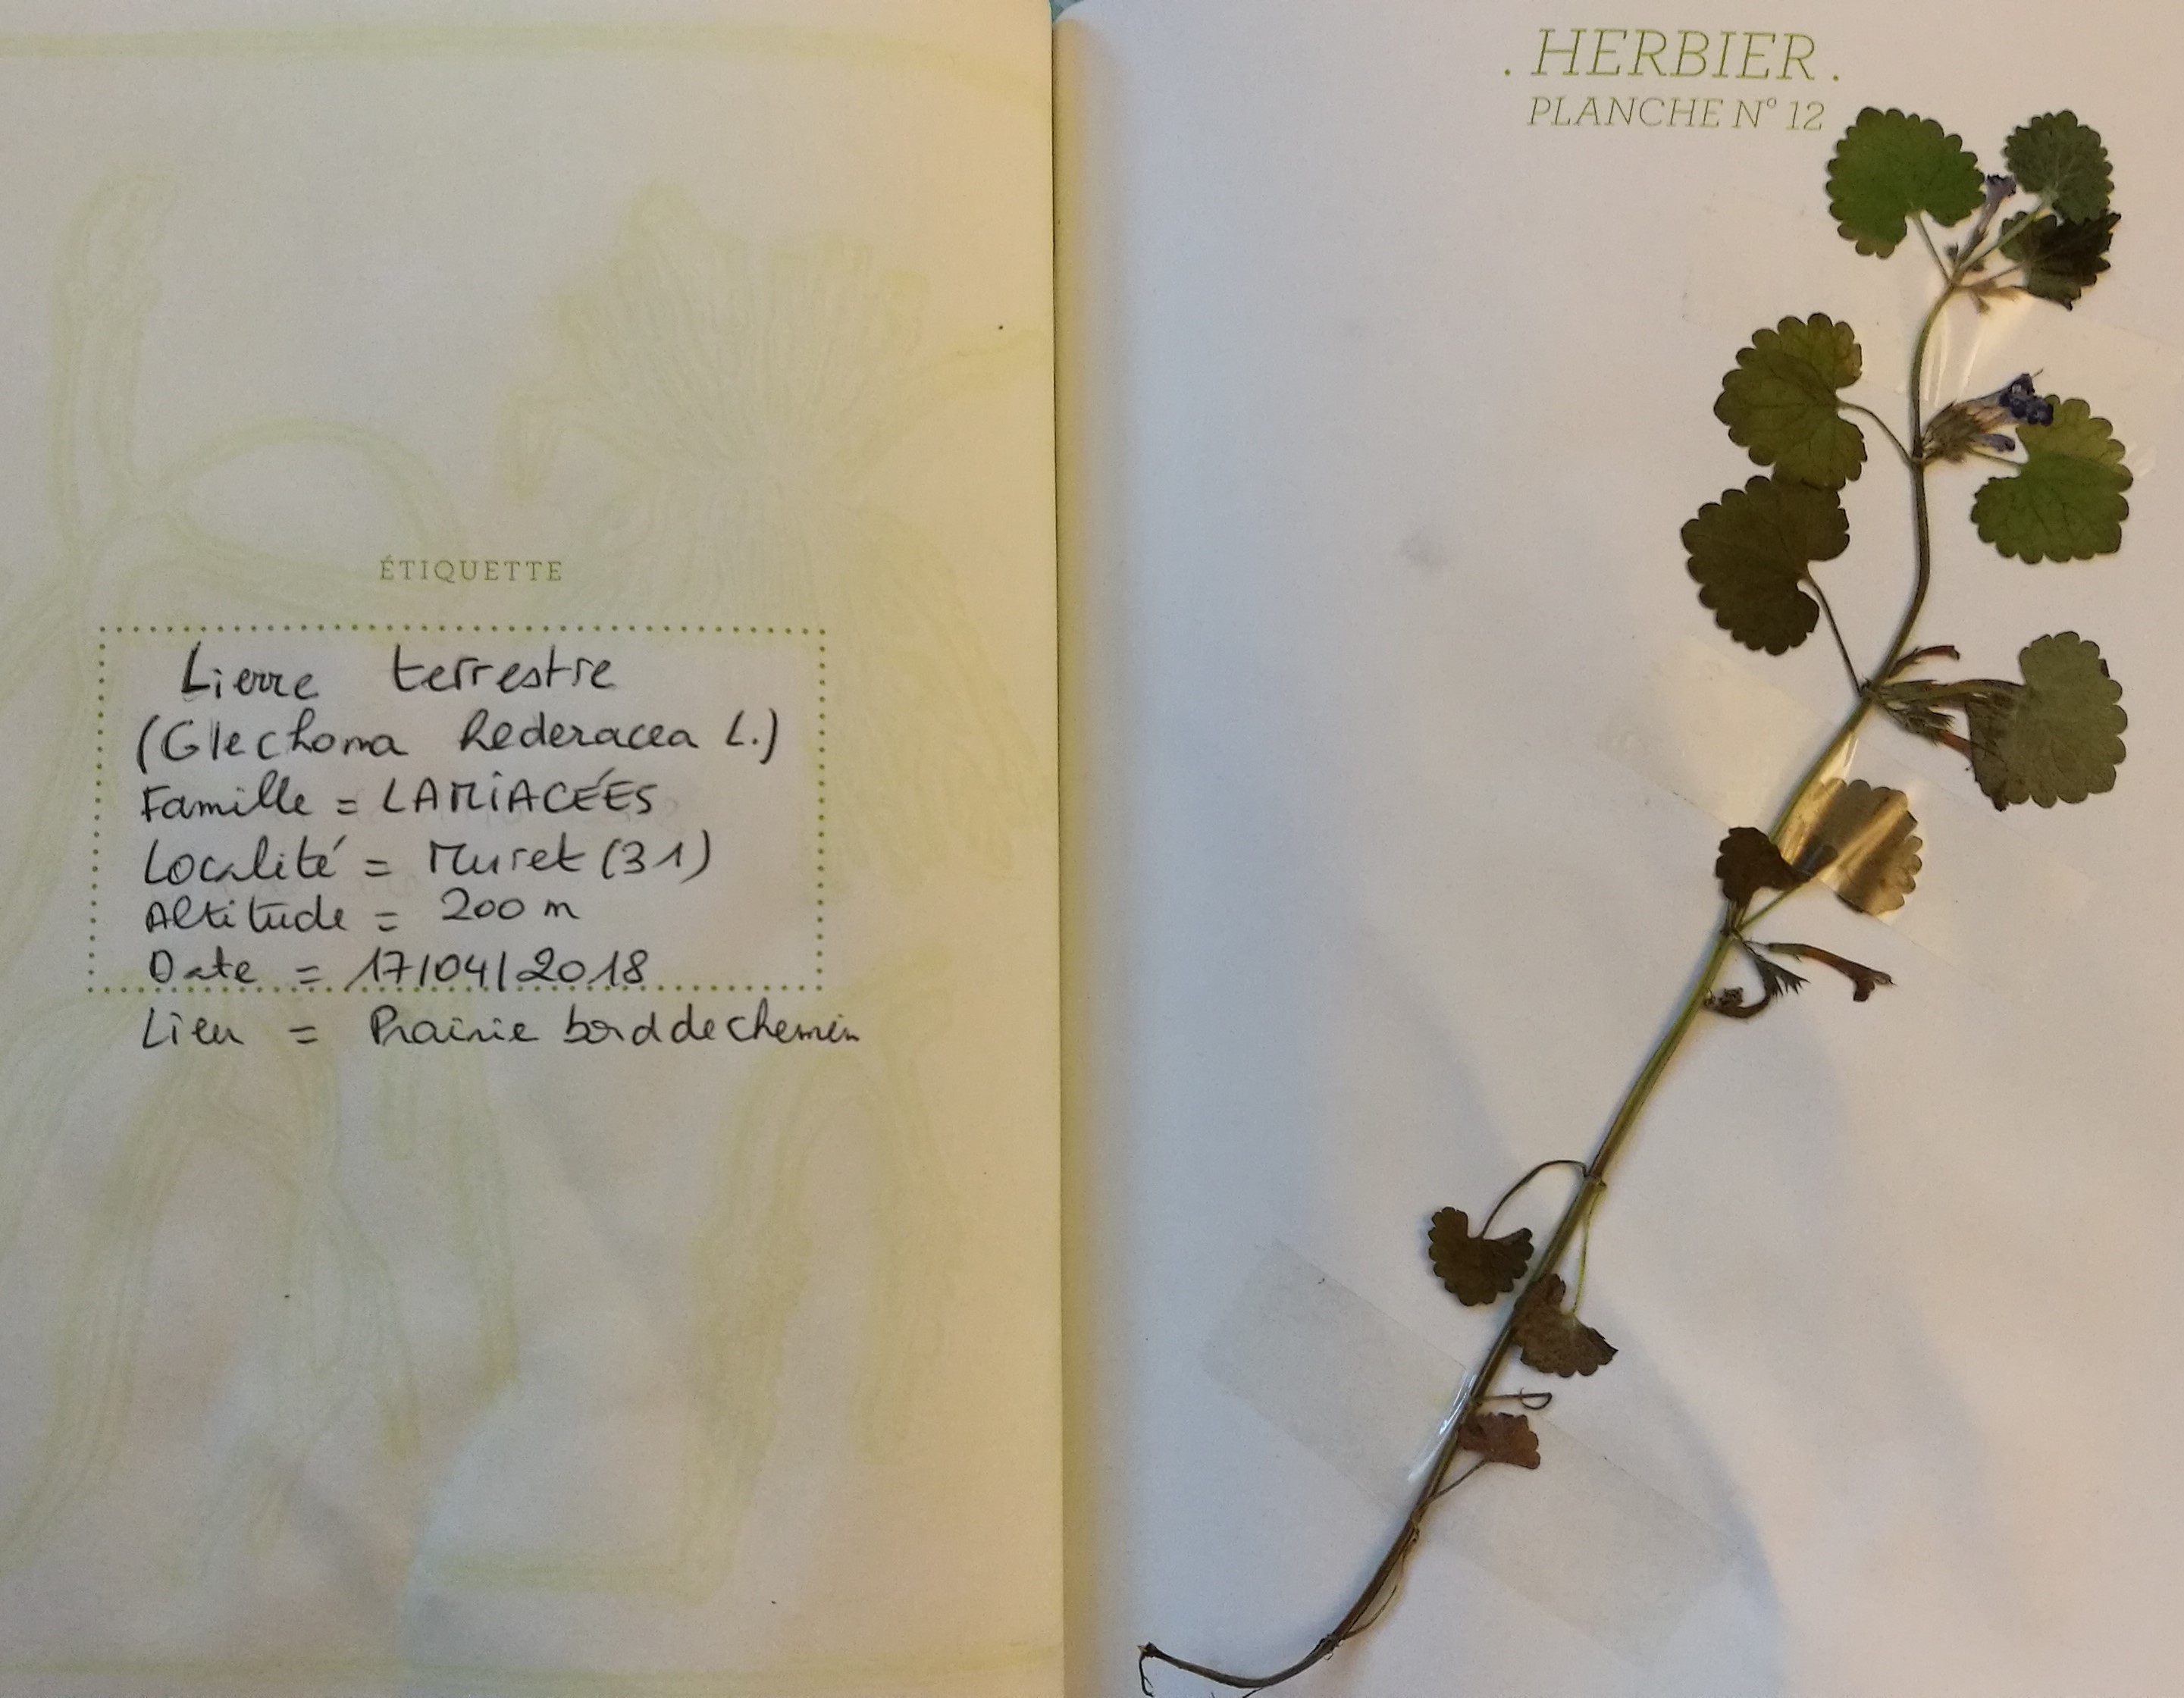 ÉTIQUETTE
Lierre terrestre
(Glechoma hederacea L.)
Famille = LAMIACÉES
Localité = Muret (31)
Altitude = 200 m
Date = 17/04/2018
Lieu = Prairie bord de chemin
. HERBIER .
PLANCHE N° 12